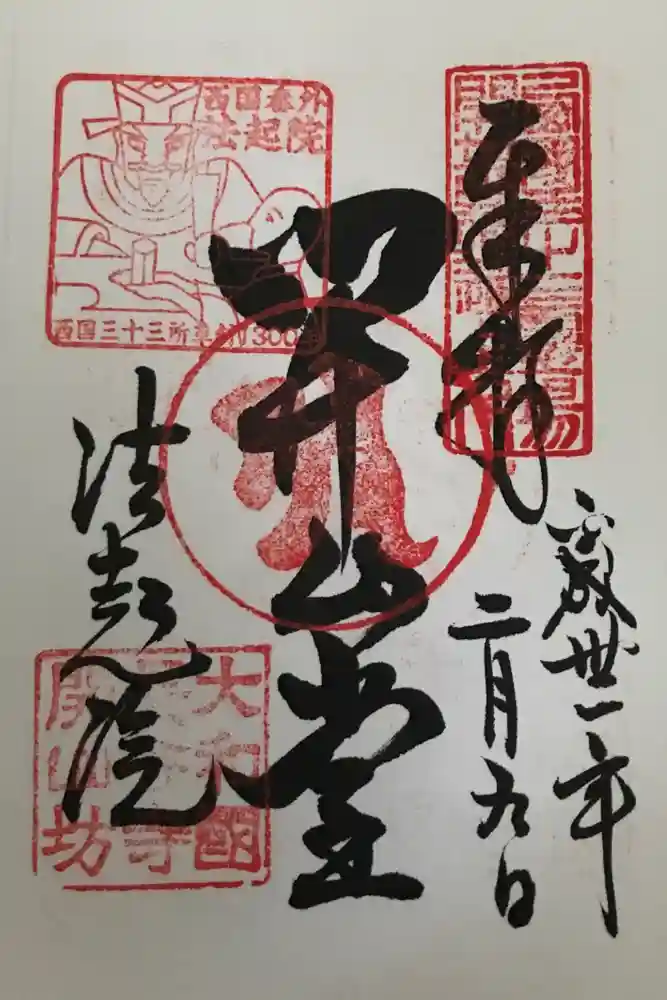 奉拝
平成丗一年
二月九日
開山堂
法起院
西国番外
法起院
西国三十三所草創1300年
大和國
長谷寺
開山坊